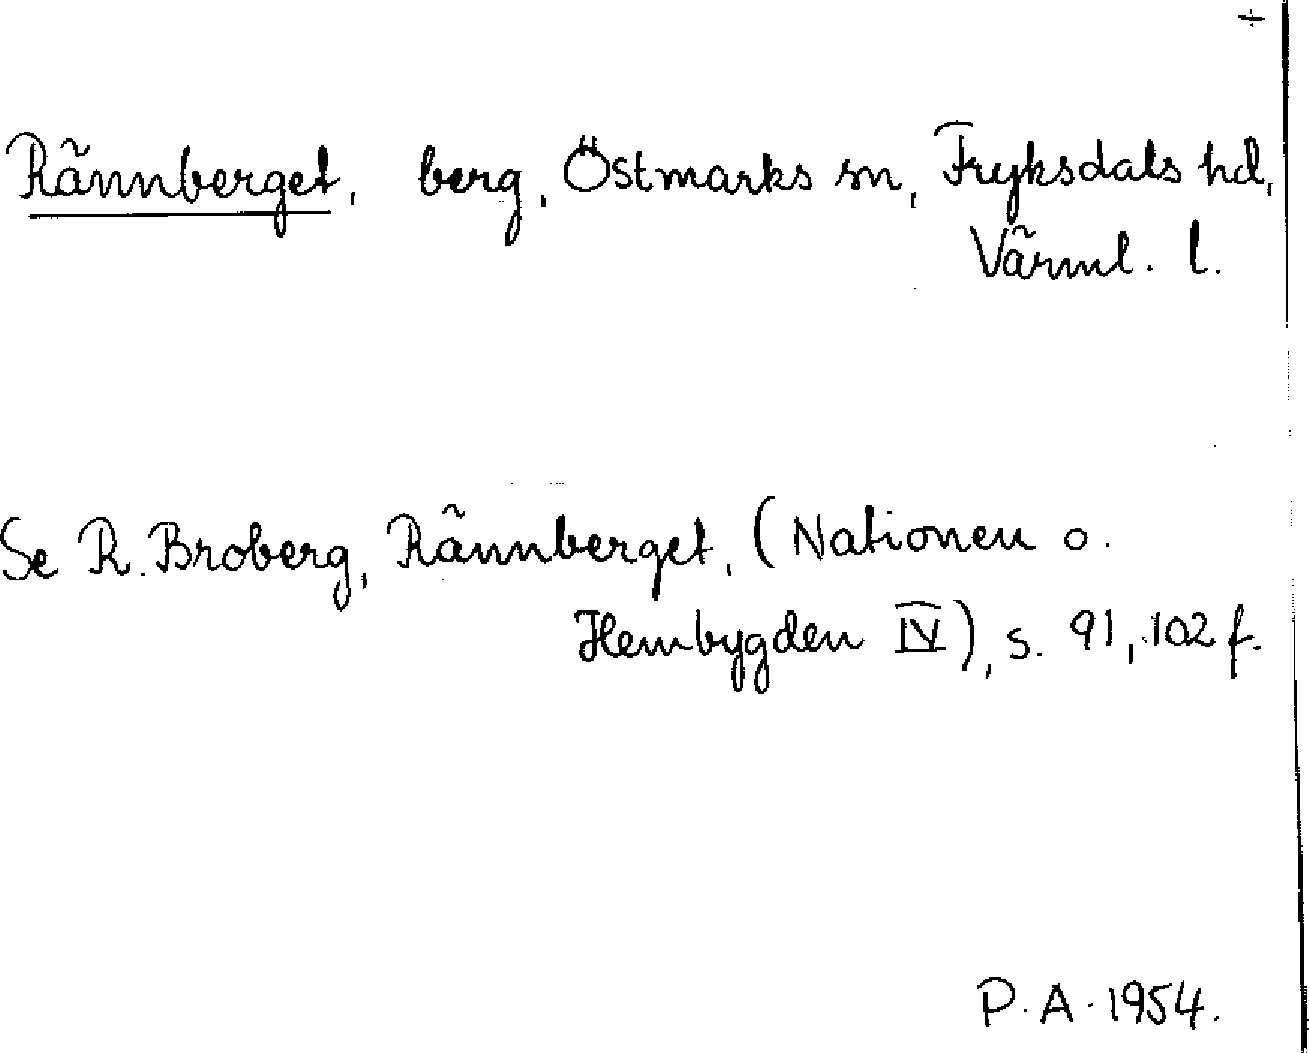 +
Rännberget, berg, Östmarks sn, Fryksdals hd,
Värml. l.
Se R. Broberg, Rännberget, (Nationen o.
Hembygden IV), s. 91, 102 f.
P. A. 1954.